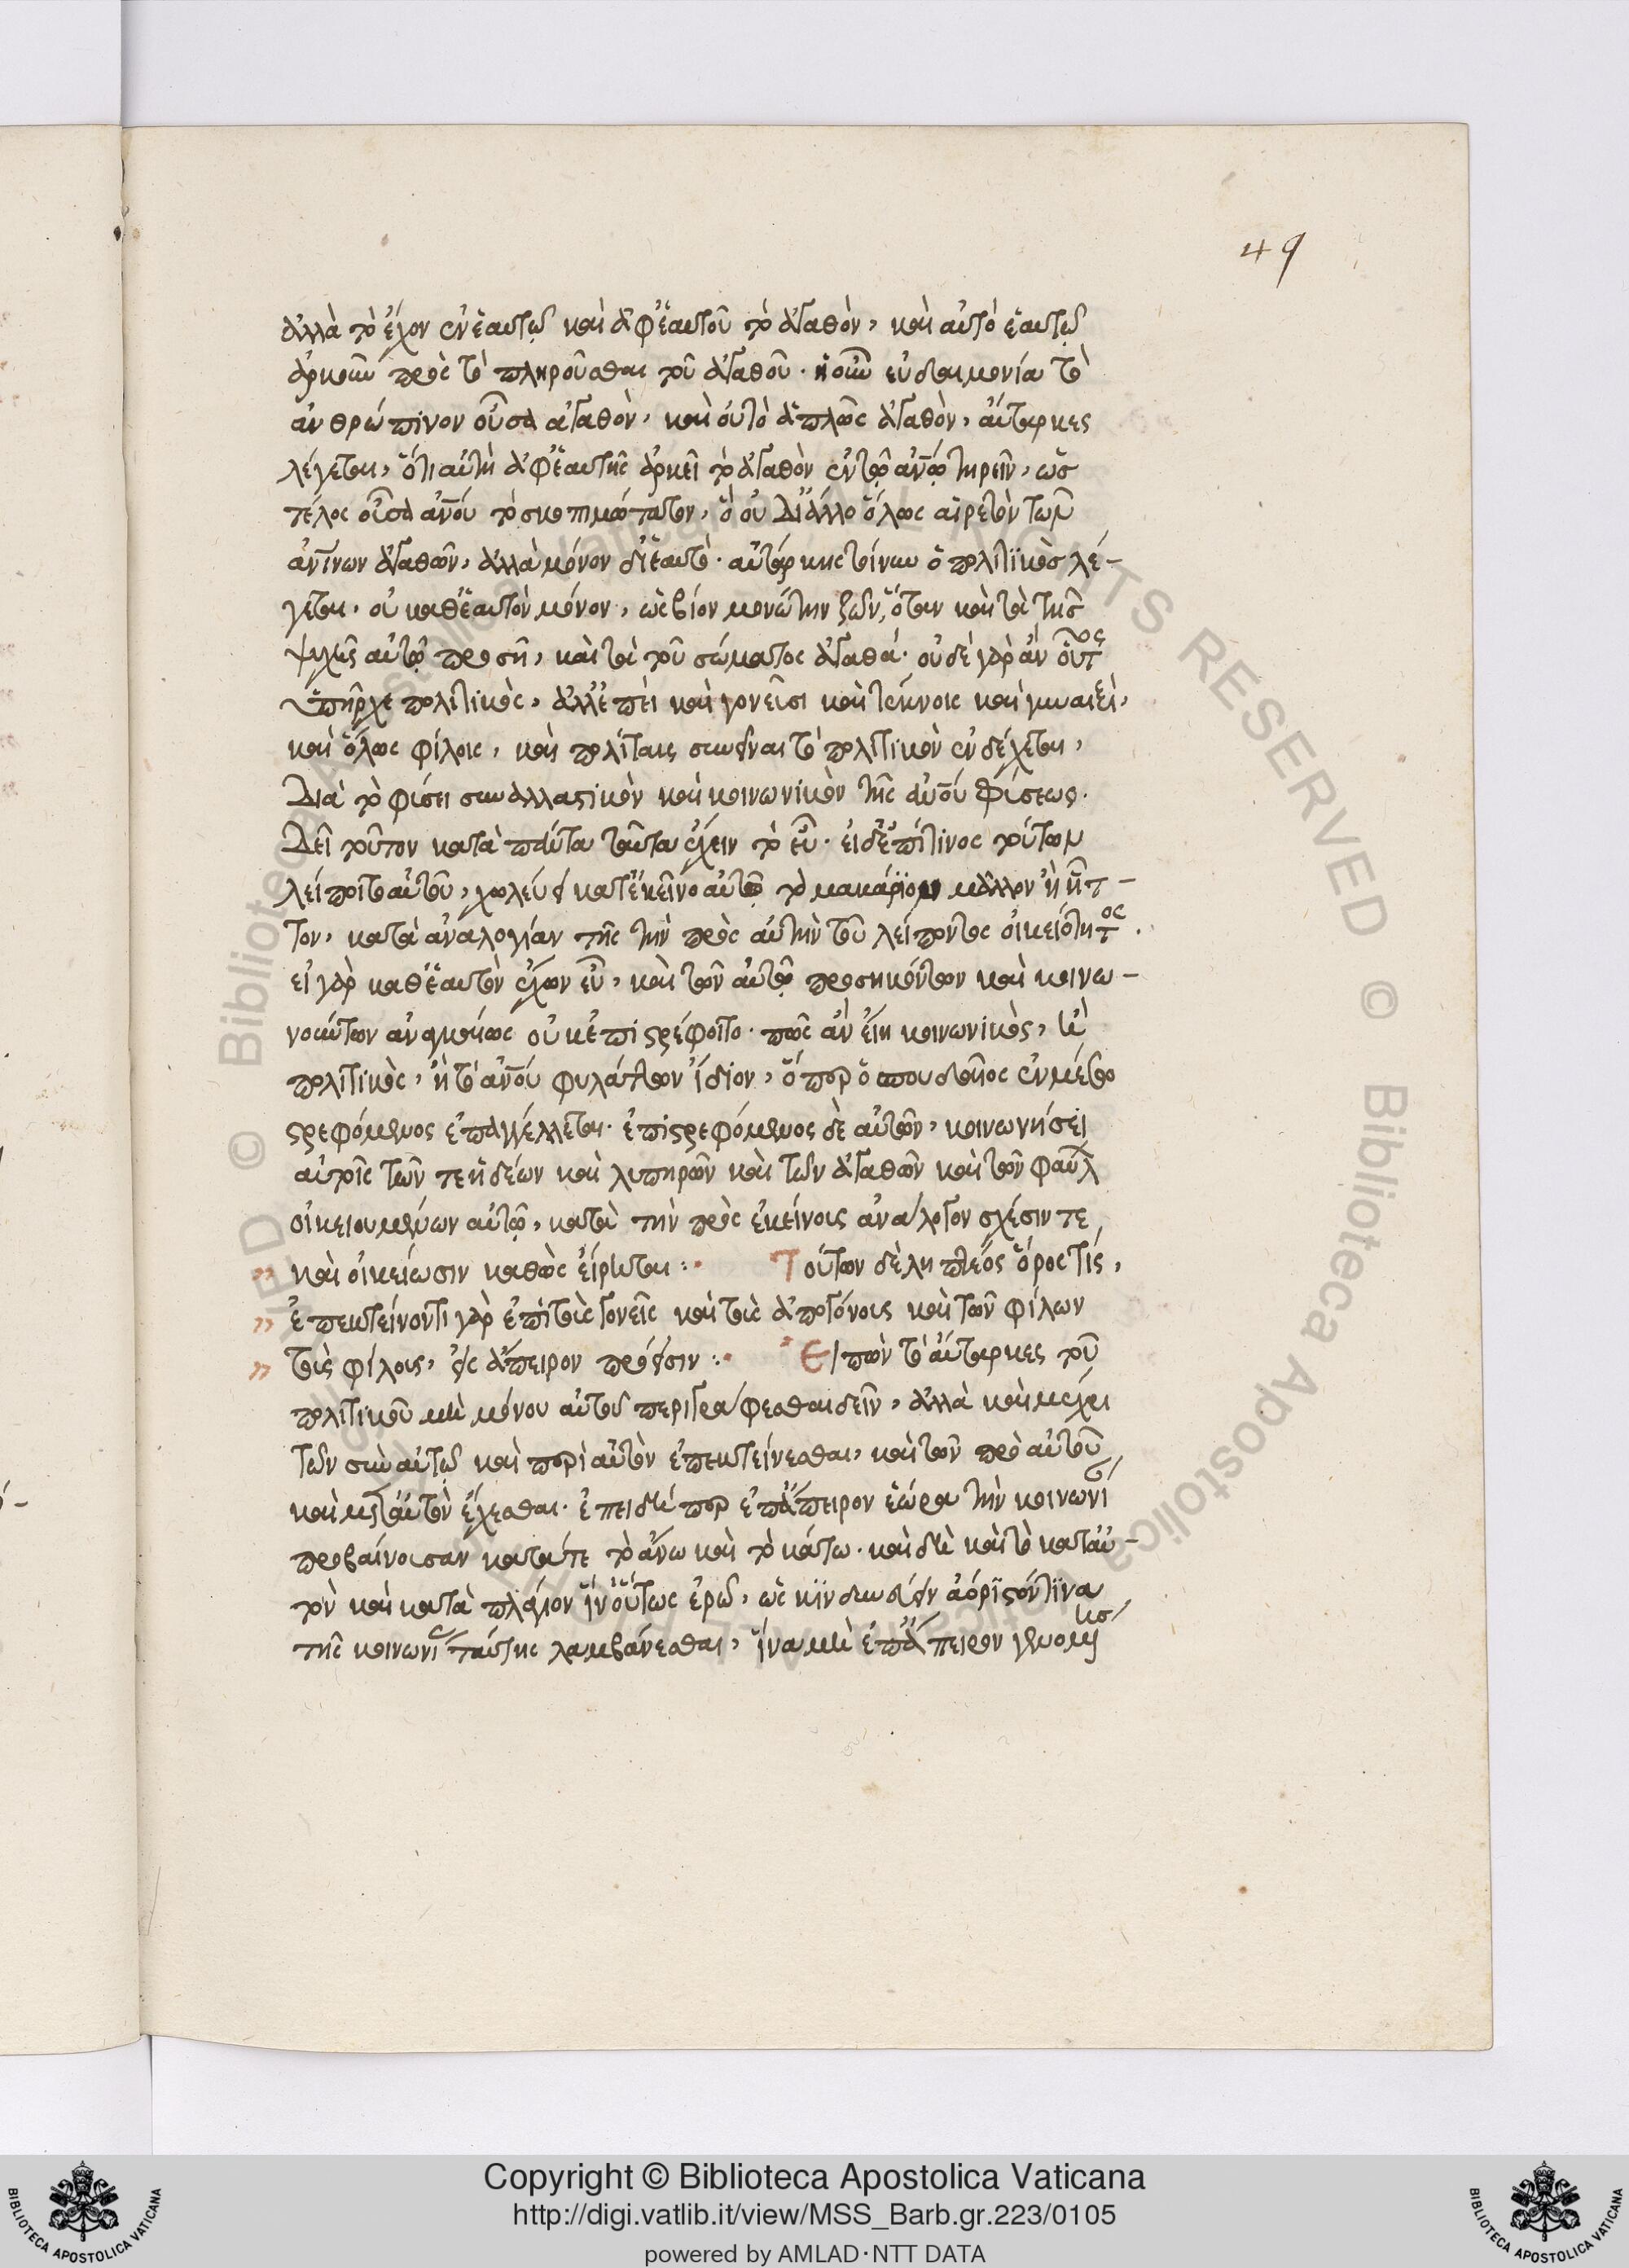 49
ἀλλὰ τὸ ἔχον ἐν ἑαυτῷ καὶ ἀφ' ἑαυτοῦ τὸ ἀγαθὸν, καὶ αὐτὸ ἑαυτῷ
ἀρκοῦν πρὸς τὸ πληροῦσθαι τοῦ ἀγαθοῦ. ἡ οὖν εὐδαιμονία τὸ
ἀνθρώπινον οὖσα ἀγαθὸν, καὶ οὐ τὸ ἁπλῶς ἀγαθὸν, αὔταρκες
λέγεται, ὅτι αὐτὴ ἀφ' ἑαυτῆς ἀρκεῖ τὸ ἀγαθὸν ἐν τῷ ἀνῷ τηρεῖν, ὡς
τέλος οὖσα ἀνου τὸ σκοπιμώτατον, ὃ οὐ δι' ἄλλο ὅλως αἱρετὸν τῶν
ἀνίνων ἀγαθῶν, ἀλλὰ μόνον δι' ἑαυτό. αὐτάρκης τοίνυν ὁ πολιτικὸς λέ-
γεται, οὐ καθ' ἑαυτὸν μόνον, ὡς βίον μονώτην ζῶν, ὅταν καὶ τὰ τῆς
ψυχῆς αὐτῷ προσῆ, καὶ τὰ τοῦ σώματος ἀγαθά. οὐδὲ γὰρ ἂν οὗτος
ὑπῆρχε πολιτικὸς, ἀλλ' ἐπεὶ καὶ γονεῦσι καὶ τέκνοις καὶ γυναιξὶ,
καὶ ὅλως φίλοις, καὶ πολίταις συνεῖναι τὸ πολιτικὸν ἐνδέχεται,
Διὰ τὸ φύσει συναλλαστικὸν καὶ κοινωνικὸν τῆς ἀνου φύσεως.
Δεῖ τοῦτον κατὰ πάντα ταῦτα ἔχειν τὸ εὖ. εἰ δ' ἐπί τινος τούτων
λείποιτο αὐτοῦ, χωλεύει κατ' ἐκεῖνο αὐτῷ τὸ μακάριον μᾶλλον ἢ ἧτ-
τον, κατὰ ἀναλογίαν τῆς τὴν πρὸς αὐτὴν τοῦ λείποντος οἰκειότητος.
εἰ γὰρ καθ' ἑαυτὸν ἔχων εὖ, καὶ τῶν αὐτῷ προσηκόντων καὶ κοινω-
νούντων ἀναγκαίως οὐκ ἐπιστρέφοιτο. πῶς ἂν εἴη κοινωνικὸς, καὶ
πολιτικὸς, ἢ τὸ ἀνου φυλάττων ἴδιον, ὅπερ ὁ σπουδαῖος ἐν μέτρῳ
στρεφόμενος ἐπαγγέλλεται. ἐπιστρεφόμενος δὲ αὐτῶν, κοινωνήσει
αὐτοῖς τῶν τε ἡδέων καὶ λυπηρῶν καὶ τῶν ἀγαθῶν καὶ τῶν φαύλ
οἰκειουμένων αὐτῷ, κατὰ τὴν πρὸς ἐκείνοις ἀνάλογον σχέσιν τε
καὶ οἰκείωσιν καθὼς εἴρηται : · Τούτων δὲ ληπτέος ὅρος τίς,
ἐπεκτείνοντι γὰρ ἐπὶ τοὺς γονεῖς καὶ τοὺς ἀπογόνους καὶ τῶν φίλων
τοὺς φίλους, εἰς ἄπειρον πρόεισιν : · Εἰπὼν τὸ αὔταρκες τοῦ
πολιτικοῦ μὴ μόνου αὐτοῦ περιγράφεσθαι δεῖν, ἀλλὰ καὶ μέχρι
τῶν σὺν αὐτῷ καὶ περὶ αὐτὸν ἐπεκτείνεσθαι, καὶ τῶν πρὸ αὐτοῦ
καὶ μετ' αὐτὸν ἔχεσθαι. ἐπειδήπερ ἐπ' ἄπειρον ἑώρα τὴν κοινωνί
προβαίνουσαν κατά τε τὸ ἄνω καὶ τὸ κάτω. καὶ δὴ καὶ τὸ κατ' αὐ-
τὸν καὶ κατὰ πλάγιον ἵν' οὕτως ἐρῶ, ὡς
τῆς κοινωνί ταύτης λαμβάνεσθαι, ἵνα μὴ ἐπ' ἄπειρον